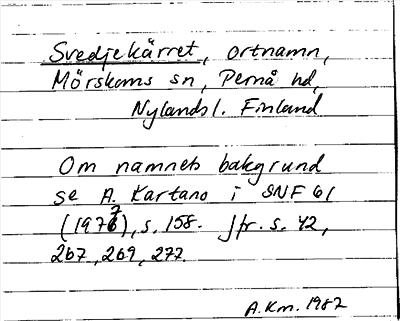 Svedjekärret, ortnamn,
Mörskoms sn, Pernå hd,
Nylands l. Finland
Om namnets bakgrund
se A. Kartano i SNF 61
(1977), s. 158. Jfr. s. 42,
267, 269, 277.
A.Km. 1987